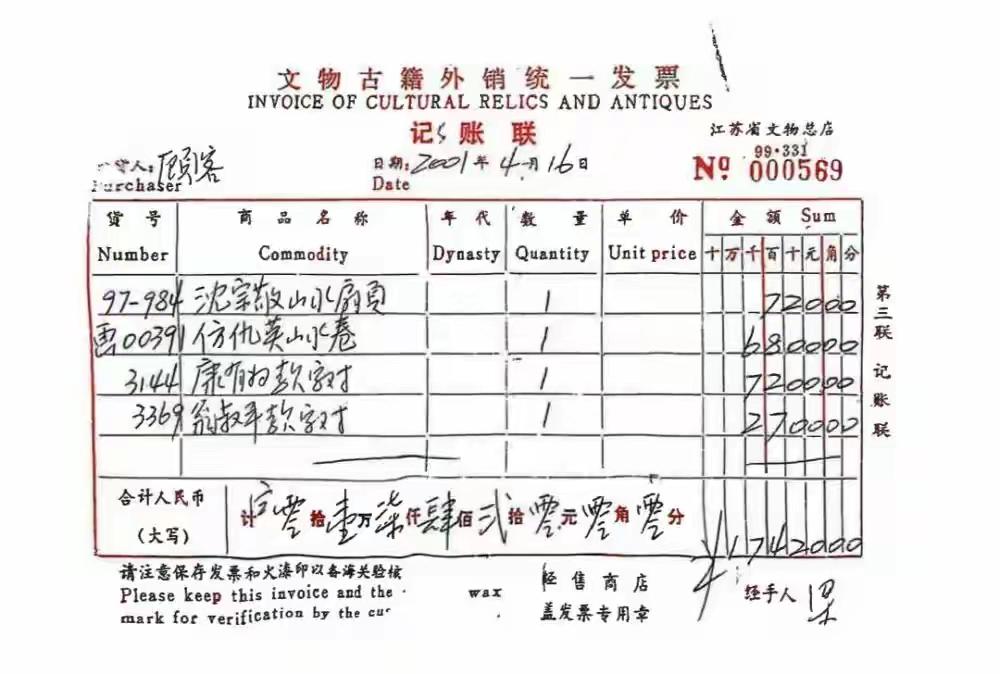 文物古籍外销统一发票
INVOICE OF CULTURAL RELICS AND ANTIQUES
记账联
江苏省文物总店
99·331
Nº 000569
货人: 顾客
Purchaser
日期: 2001年 4月 16日
Date
货号 商品名称 年代 数量 单价 金额 Sum
Number Commodity Dynasty Quantity Unit price 十万千百十元角分
97-984 沈宗敬山水扇页 1 72000
00391 仿仇英山水卷 1 680000
3144 康有为款字对 1 720000
3369 翁叔平款字对 1 270000
合计人民币
(大写)
计 零拾壹万柒仟肆佰贰拾零元零角零分
¥1742000
第三联 记账联
请注意保存发票和火漆印以备海关验核
Please keep this invoice and the wax
mark for verification by the cus
经售商店
盖发票专用章
经手人 梁